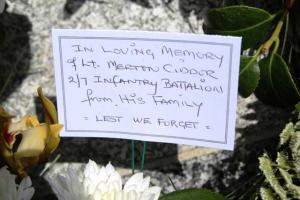 IN LOVING MEMORY
of Lt. MERTON
2/7 INFANTRY BATTALION
from HIS FAMILY
= LEST WE FORGET =